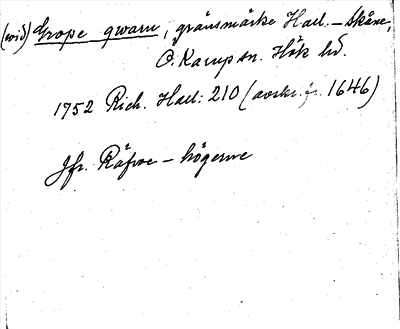 (wid) Grope qwarn, gränsmärke Hall. – Skåne,
Ö. Karup sn. Höks hd.
1752 Rich. Hall: 210 (avskr. fr. 1646)
Jfr. Räfwe – högerne